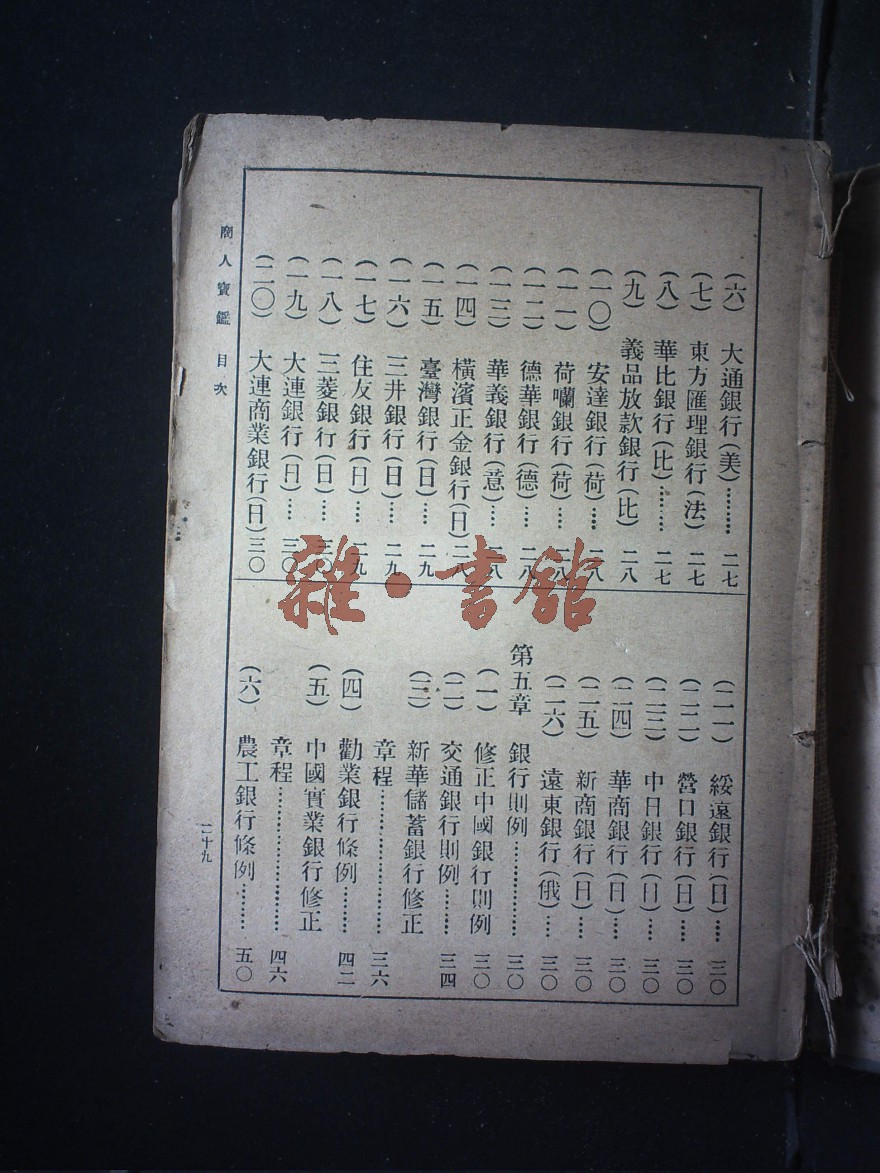 (六) 大通銀行(美)………二七
(七) 東方匯理銀行(法) 二七
(八) 華比銀行(比)……二七
(九) 義品放款銀行(比) 二八
(一〇) 安達銀行(荷)…二八
(一一) 荷嘣銀行(荷)…二八
(一二) 德華銀行(德)…二八
(一三) 華義銀行(意)…二八
(一四) 橫濱正金銀行(日)二八
(一五) 臺灣銀行(日)…二九
(一六) 三井銀行(日)…二九
(一七) 住友銀行(日)…二九
(一八) 三菱銀行(日)…三〇
(一九) 大連銀行(日)…三〇
(二〇) 大連商業銀行(日)三〇
(二一) 綏遠銀行(日)…三〇
(二二) 營口銀行(日)…三〇
(二三) 中日銀行(日)…三〇
(二四) 華商銀行(日)…三〇
(二五) 新商銀行(日)…三〇
(二六) 遠東銀行(俄)…三〇
第五章 銀行則例…………三〇
(一) 修正中國銀行則例 三〇
(二) 交通銀行則例………三四
(三) 新華儲蓄銀行修正
章程………………三六
(四) 勸業銀行條例………四二
(五) 中國實業銀行修正
章程………………四六
(六) 農工銀行條例………五〇
商人寶鑑 目次
二十九
雜·書館